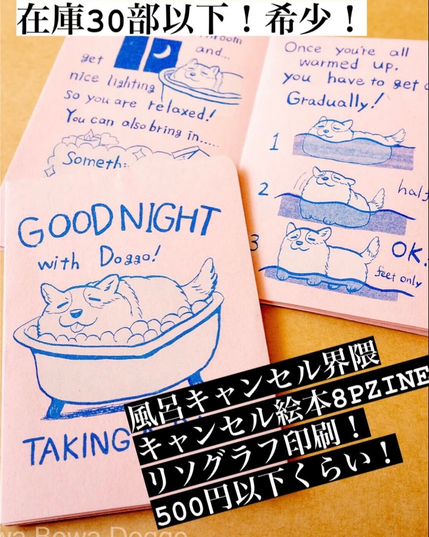 在庫30部以下！希少！
and...
get
nice lighting
so you are relaxed!
You can also bring in.....
Someth
Once you're all
warmed up,
you have to get
Gradually!
1
2
half
3
OK.
feet only
GOOD NIGHT
with Doggo!
TAKING
風呂キャンセル界隈
キャンセル絵本8PZINE
リソグラフ印刷！
500円以下くらい！
Bowa Doggo